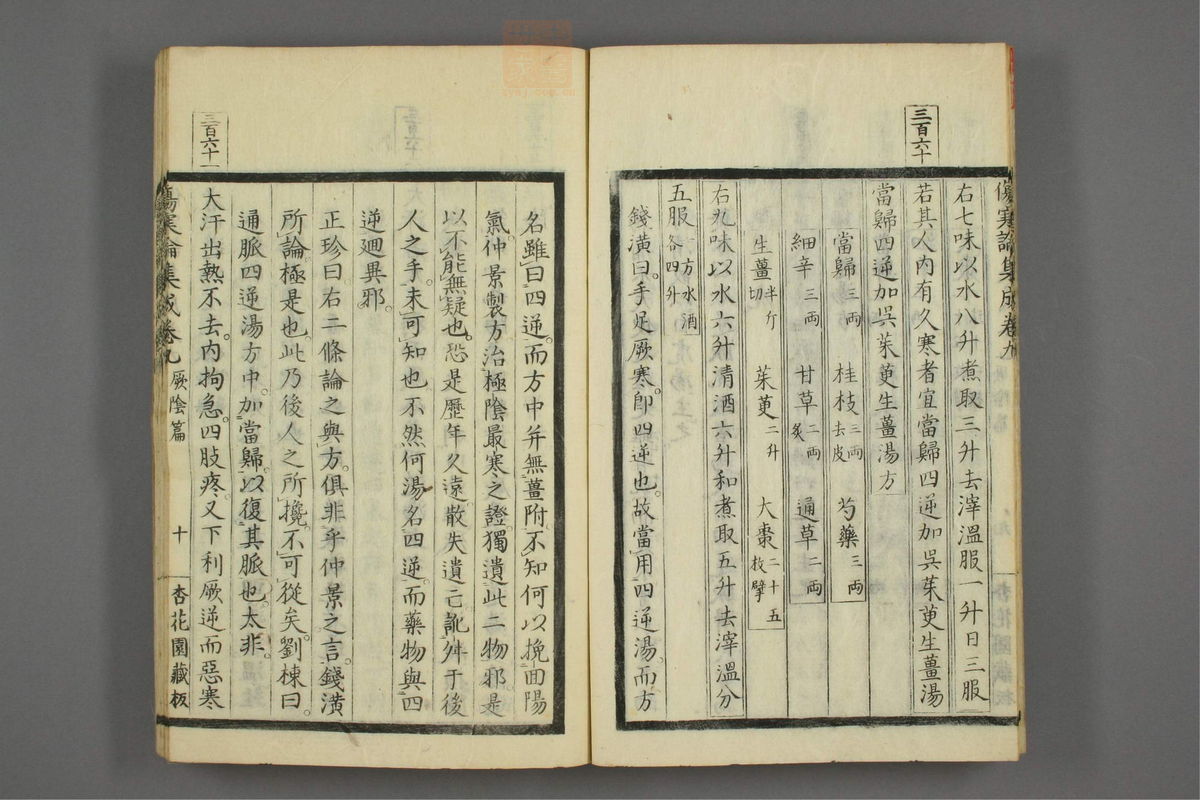 三百六十
傷寒論集成卷九
右七味以水八升煮取三升去滓溫服一升日三服
若其人內有久寒者宜當歸四逆加吳茱萸生薑湯
當歸四逆加吳茱萸生薑湯方
當歸三兩 桂枝三兩去皮 芍藥三兩
細辛三兩 甘草二兩炙 通草二兩
生薑半斤切 茱萸二升 大棗二十五枚擘
右九味以水六升清酒六升和煮取五升去滓溫分
五服一方水酒各四升
錢潢曰手足厥寒。即四逆也。故當用四逆湯。而方
名雖曰四逆。而方中并無薑附。不知何以挽回陽
氣。仲景製方治極陰最寒之證。獨遺此二物邪。是
以不能無疑也。恐是歷年久遠散失遺亡訛舛于後
人之手。未可知也不然何湯名四逆。而藥物與四
逆廻異邪。
正珍曰。右二條論之與方。俱非乎仲景之言。錢潢
所論極是也。此乃後人之所攙。不可從矣。劉棟曰。
通脈四逆湯方中。加當歸。以復其脈也。太非。
三百六十一
大汗出熱不去。內拘急。四肢疼。又下利厥逆而惡寒
傷寒論集成卷九 厥陰篇 十 杏花園藏板